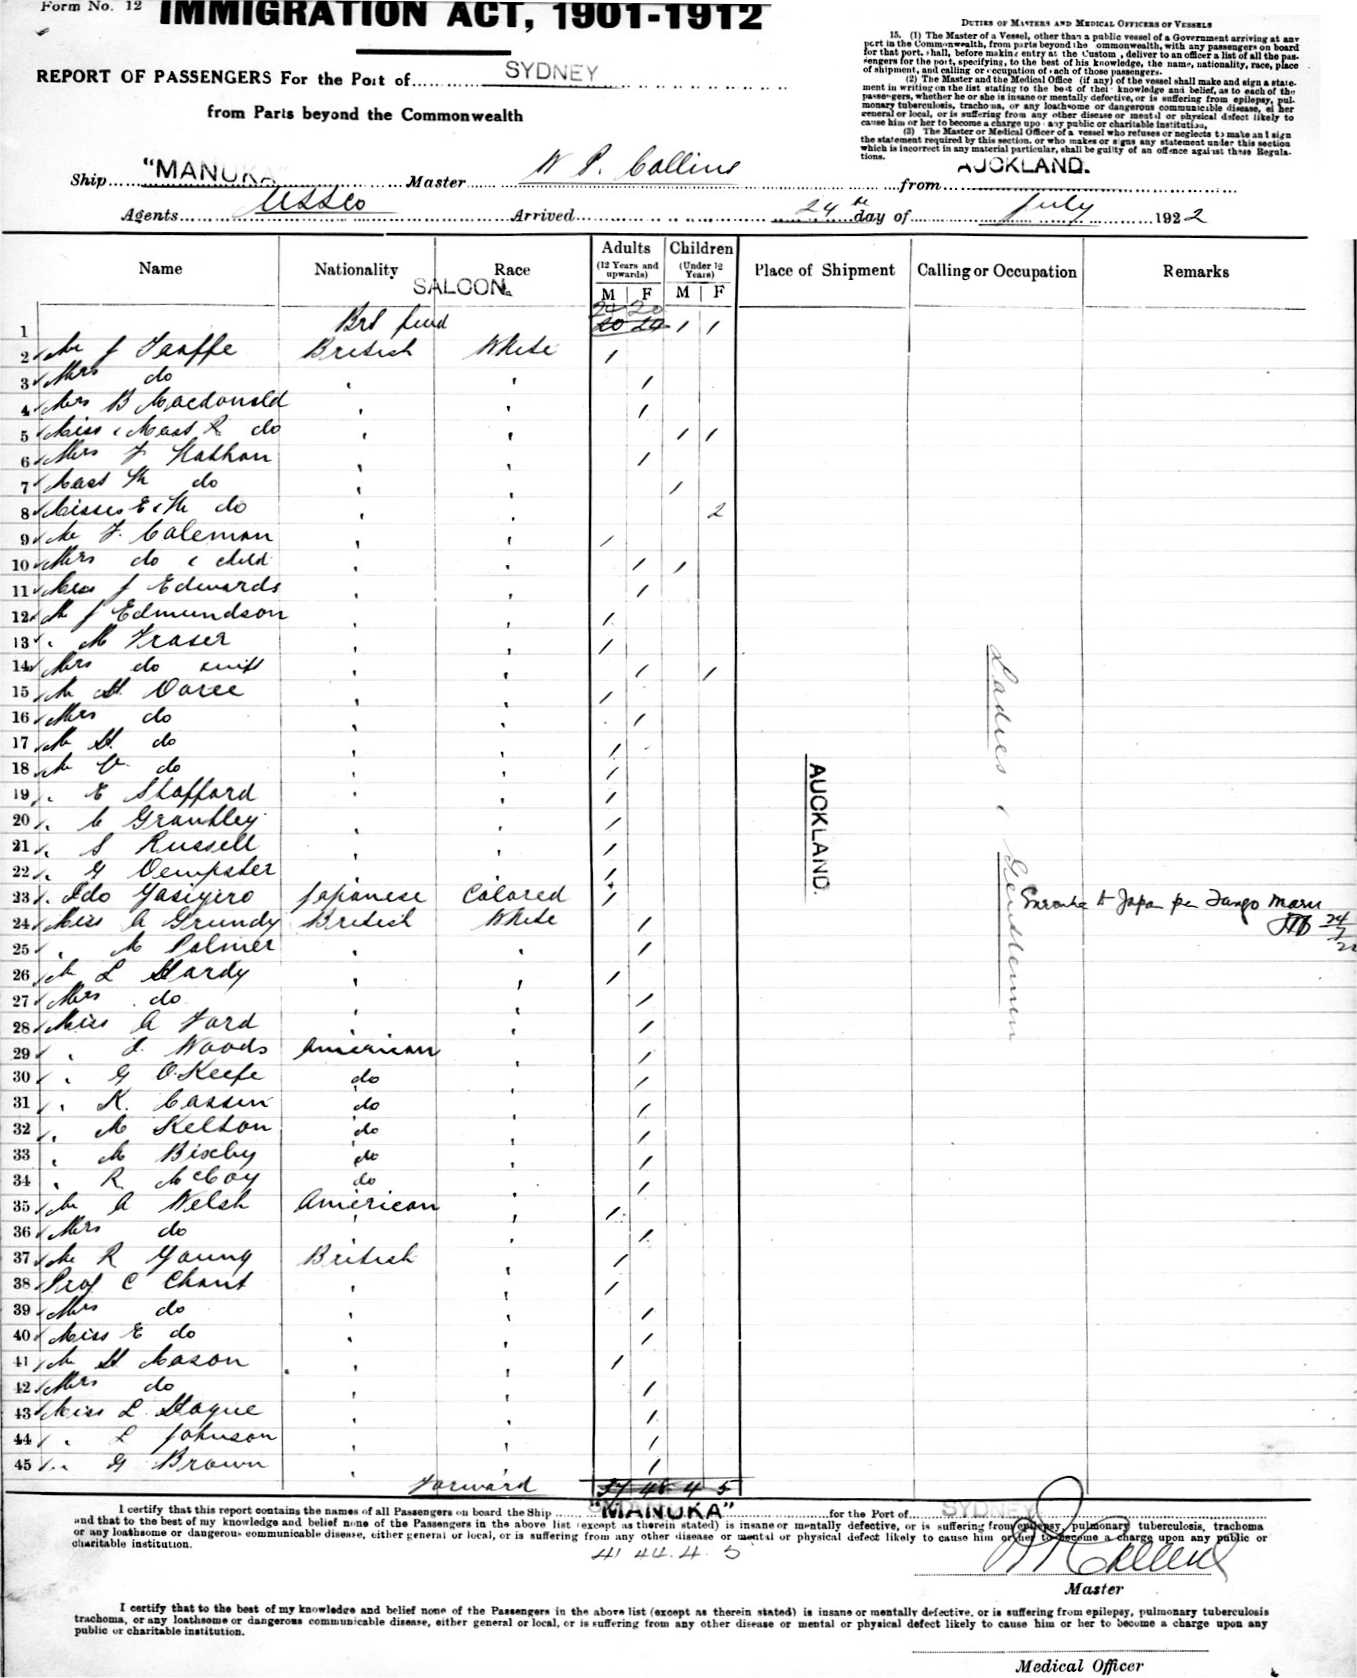 Form No. 12
IMMIGRATION ACT, 1901-1912
REPORT OF PASSENGERS For the Port of SYDNEY
from Parts beyond the Commonwealth
DUTIES OF MASTERS AND MEDICAL OFFICERS OF VESSELS
15. (1) The Master of a Vessel, other than a public vessel of a Government arriving at any
port in the Commonwealth, from parts beyond the ommonwealth, with any passengers on board
for that port, shall, before making entry at the Custom, deliver to an officer a list of all the pas-
sengers for the port, specifying, to the best of his knowledge, the name, nationality, race, place
of shipment, and calling or occupation of each of those passengers.
(2) The Master and the Medical Office (if any) of the vessel shall make and sign a state-
ment in writing on the list stating to the best of their knowledge and belief, as to each of the
passengers, whether he or she is insane or mentally defective, or is suffering from epilepsy, pul-
monary tuberculosis, trachoma, or any loathsome or dangerous communicable disease, ei her
general or local, or is suffering from any other disease or mental or physical defect likely to
cause him or her to become a charge upon any public or charitable institution.
(3) The Master or Medical Officer of a vessel who refuses or neglects to make and sign
the statement required by this section, or who makes or signs any statement under this section
which is incorrect in any material particular, shall be guilty of an offence against these Regula-
tions.
Ship "MANUKA" Master W P. Collins from AUCKLAND.
Agents USSCo Arrived 24th day of July 1922
Name Nationality Race Adults (12 Years and upwards) M F Children (Under 12 Years) M F Place of Shipment Calling or Occupation Remarks
SALOON.
24 20
1 Brt fwd 20 24 1 1
2 Mr J Taaffe British White 1
3 Mrs do " " 1
4 Mrs B Macdonald " " 1
5 Miss & Mast R do " " 1 1
6 Mrs F Nathan " " 1
7 Mast M do " " 1
8 Misses E & M do " " 2
9 Mr F. Coleman " " 1
10 Mrs do & child " " 1 1
11 Miss J Edwards " " 1
12 Mr J Edmundson " " 1
13 " M Fraser " " 1
14 Mrs do & inft " " 1 1
15 Mr H. Voree " " 1
16 Mrs do " " 1
17 Mr H. do " " 1
18 Mr V. do " " 1
19 " E Stafford " " 1
20 " C Grantley " " 1
21 " S Russell " " 1
22 " G Dempster " " 1
23 " Ido Yasiyiro Japanese Colored 1 Enroute to Japan per Tango Maru
24 Miss A Grundy British White 1 24/7/22
25 " M Palmer " " 1
26 Mr L Hardy " " 1
27 Mrs do " " 1
28 Miss A Ford " " 1
29 " I. Woods American " 1
30 " G O.Keefe do " 1
31 " K. Cassin do " 1
32 " M Kelton do " 1
33 " M Bixby do " 1
34 " R McCoy do " 1
35 Mr A Welsh American " 1
36 Mrs do " " 1
37 Mr R Young British " 1
38 Prof C Chant " " 1
39 Mrs do " " 1
40 Miss E do " " 1
41 Mr H. Mason " " 1
42 Mrs do " " 1
43 Miss L. Hague " " 1
44 " L Johnson " " 1
45 " G Brown " " 1
AUCKLAND.
Ladies & Gentlemen
Forward 37 48 4 5
I certify that this report contains the names of all Passengers on board the Ship "MANUKA" for the Port of SYDNEY
and that to the best of my knowledge and belief none of the Passengers in the above list (except as therein stated) is insane or mentally defective, or is suffering from epilepsy, pulmonary tuberculosis, trachoma
or any loathsome or dangerous communicable disease, either general or local, or is suffering from any other disease or mental or physical defect likely to cause him or her to become a charge upon any public or
charitable institution.
41 44. 4. 5
W P Collins
Master
I certify that to the best of my knowledge and belief none of the Passengers in the above list (except as therein stated) is insane or mentally defective, or is suffering from epilepsy, pulmonary tuberculosis
trachoma, or any loathsome or dangerous communicable disease, either general or local, or is suffering from any other disease or mental or physical defect likely to cause him or her to become a charge upon any
public or charitable institution.
Medical Officer